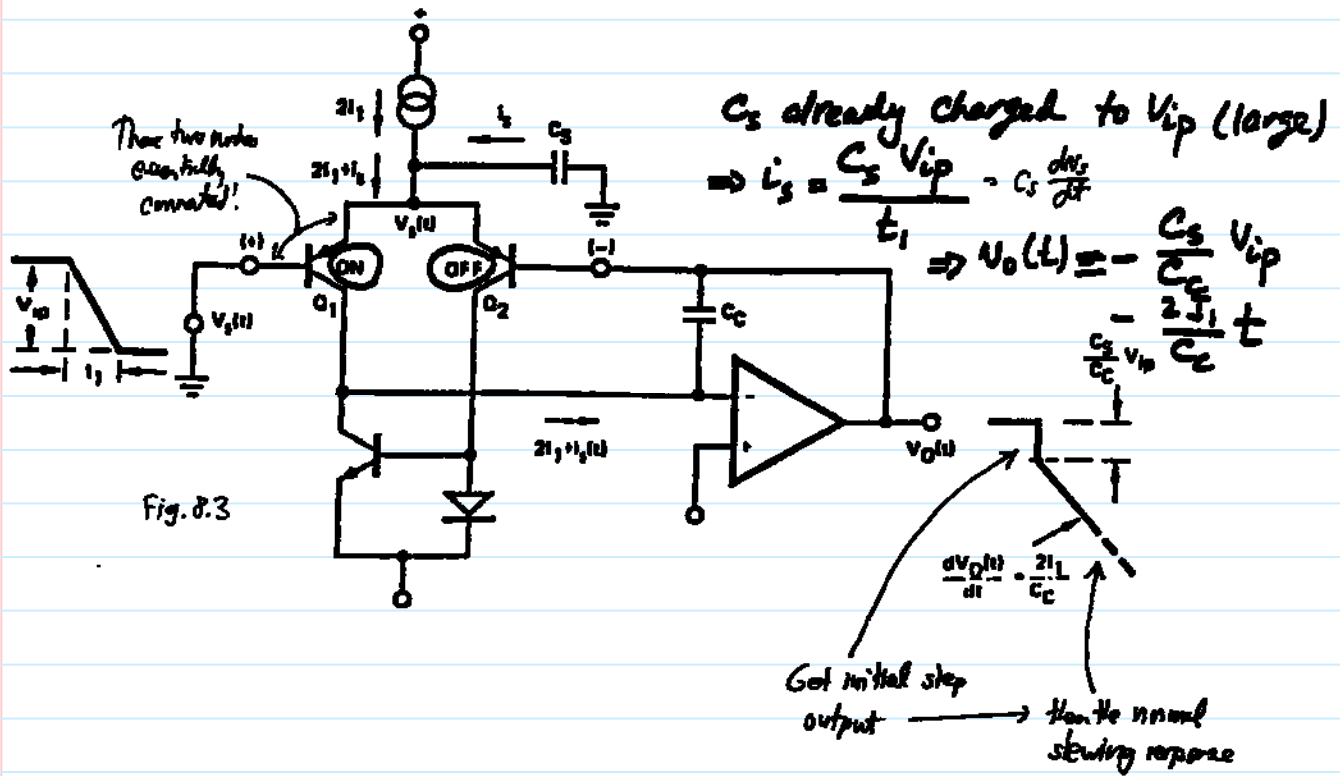 +
2I₁
i_s
C_S
2I₁+i_s
These two nodes
essentially
connected!
V_s(t)
(+)
ON
OFF
(-)
Q₁
Q₂
V_ip
V_i(t)
t₁
C_C
-
+
2I₁+i_s(t)
V_O(t)
Fig. 8.3
C_s already charged to V_ip (large)
⇒ i_s = C_s V_ip / t₁ = C_s dv_s/dt
⇒ v_o(t) = - C_s/C_c V_ip
- 2I₁/C_c t
C_S/C_C V_ip
dV_O(t)/dt = 2I₁/C_C
Get initial step
output
then the normal
slewing response